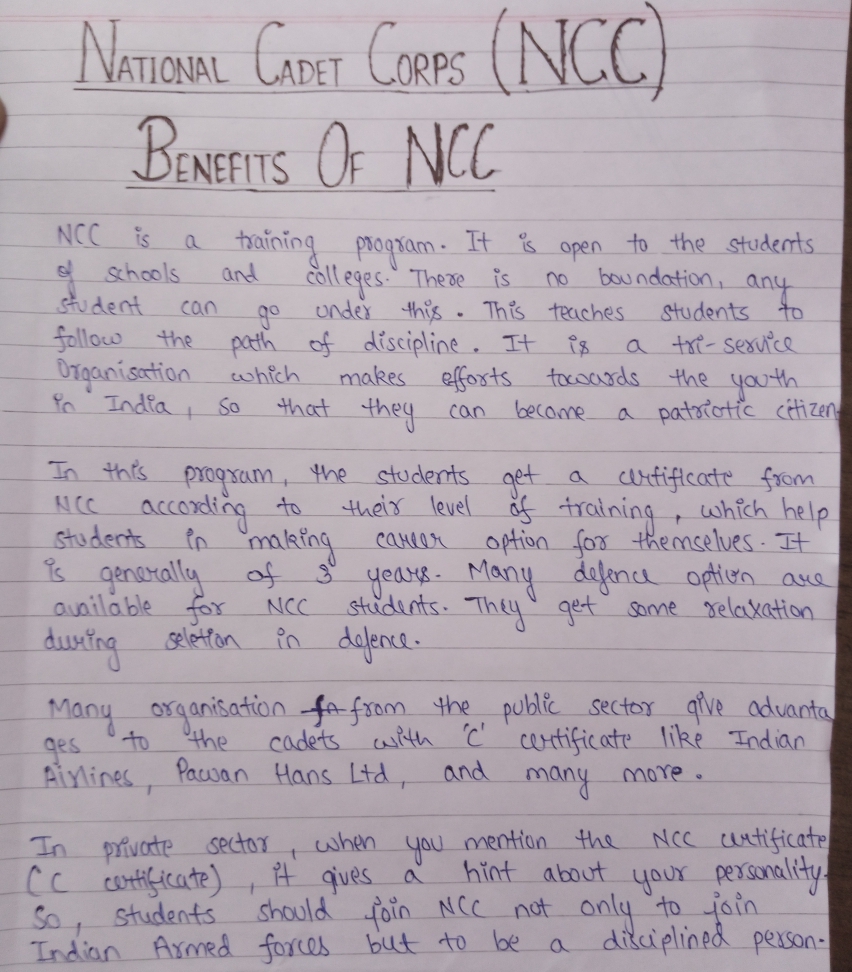 NATIONAL CADET CORPS (NCC)
BENEFITS OF NCC
NCC is a training program. It is open to the students
of schools and colleges. There is no boundation, any
student can go under this. This teaches students to
follow the path of discipline. It is a tri-service
Organisation which makes efforts towards the youth
in India, so that they can become a patriotic citizen
In this program, the students get a certificate from
NCC according to their level of training, which help
students in making career option for themselves. It
is generally of 3 years. Many defence option are
available for NCC students. They get some relaxation
during seletion in defence.
Many organisation from the public sector give advanta
ges to the cadets with 'C' certificate like Indian
Airlines, Pawan Hans Ltd, and many more.
In private sector, when you mention the NCC certificate
(C certificate), it gives a hint about your personality.
So, students should join NCC not only to join
Indian Armed forces but to be a disciplined person.